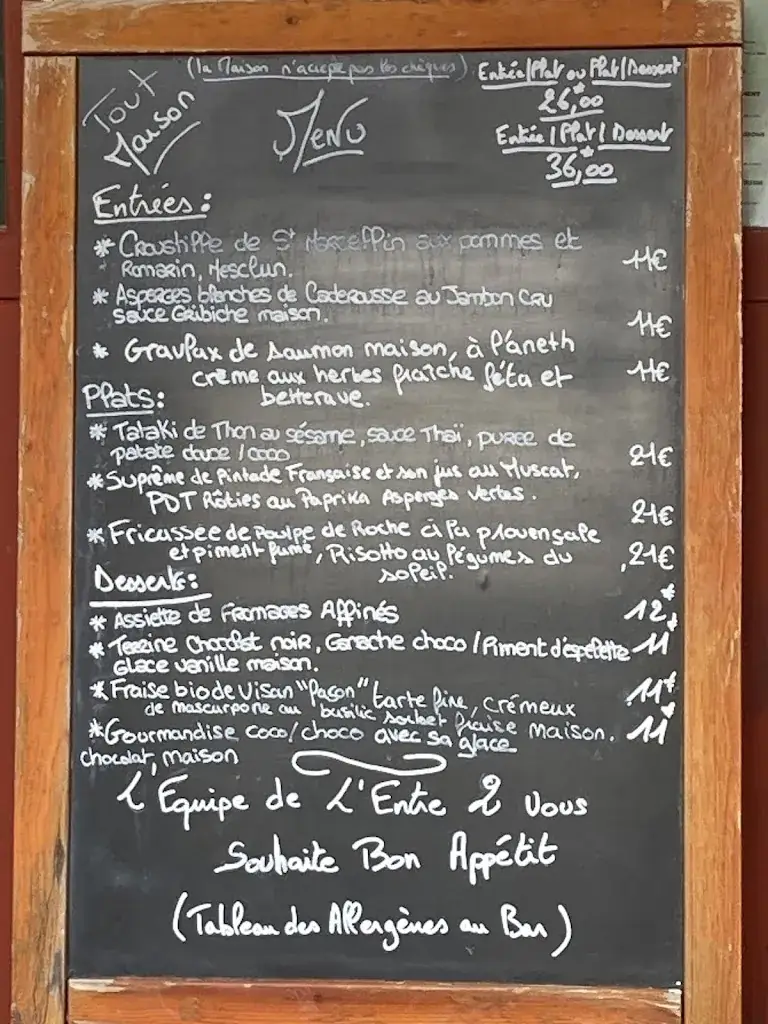 (la Maison n'accepte pas les chèques)
Tout
Maison
Menu
Entrée/Plat ou Plat/Dessert
26,00
Entrée/Plat/Dessert
36,00
Entrées:
* Croustille de St Marcellin aux pommes et
Romarin, Mesclun. 11€
* Asperges blanches de Caderousse au Jambon Cru
sauce Gribiche maison. 11€
* Gravlax de saumon maison, à l'aneth
crème aux herbes fraîche féta et 11€
betterave.
Plats:
* Tataki de Thon au sésame, sauce Thaï, purée de
patate douce / coco 21€
* Suprême de Pintade Française et son jus au Muscat,
PDT Rôties au Paprika Asperges vertes. 21€
* Fricassée de Poulpe de Roche à la provençale
et piment fumé, Risotto au légumes du 21€
soleil.
Desserts:
* Assiette de Fromages Affinés 12*
* Terrine Chocolat noir, Ganache choco / Piment d'espelette 11*
Glace vanille maison.
* Fraise bio de Visan "façon" tarte fine, crémeux 11*
de mascarpone au basilic sorbet fraise maison.
* Gourmandise coco/choco avec sa glace 11*
chocolat maison
L'Equipe de L'Entre 2 vous
Souhaite Bon Appétit
(Tableau des Allergènes au Bar)